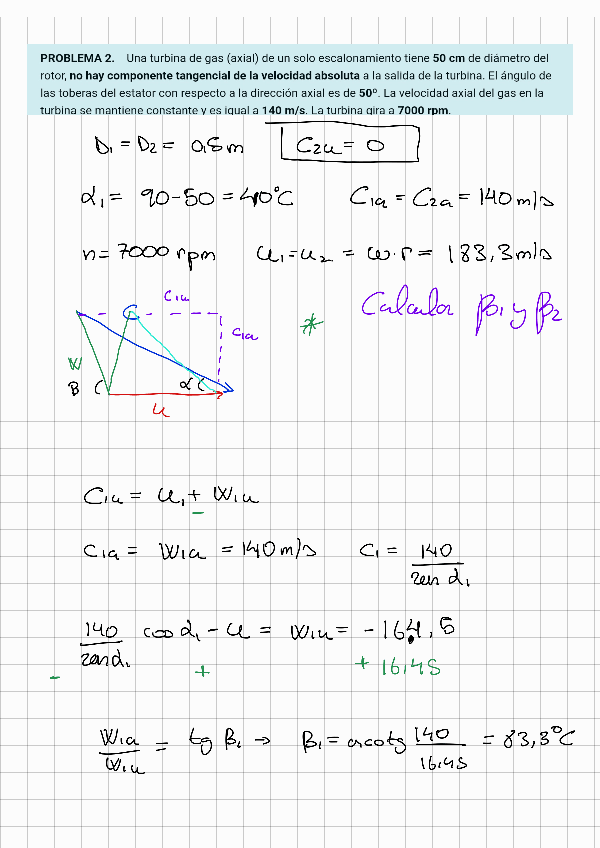 PROBLEMA 2. Una turbina de gas (axial) de un solo escalonamiento tiene 50 cm de diámetro del
rotor, no hay componente tangencial de la velocidad absoluta a la salida de la turbina. El ángulo de
las toberas del estator con respecto a la dirección axial es de 50º. La velocidad axial del gas en la
turbina se mantiene constante y es igual a 140 m/s. La turbina gira a 7000 rpm.
D₁ = D₂ = 0,5 m C₂u = 0
α₁ = 90-50 = 40°C C₁a = C₂a = 140 m/s
n = 7000 rpm u₁=u₂ = ω·r = 183,3 m/s
* Calcular β₁ y β₂
C₁u
C
C₁a
W
B
α
u
C₁u = u₁ + W₁u
-
C₁a = W₁a = 140 m/s C₁ = 140 / sen α₁
140 / sen α₁ cos α₁ - u = W₁u = -164,5
- + + 16,45
W₁a / W₁u = tg β₁ → β₁ = arcotg 140 / 16,45 = 83,3°C